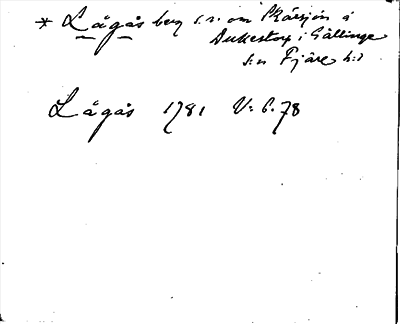 * Lågås berg s.v. om Skärsjön å
Dukestorp i Gällinge
s:n Fjäre h:d
Lågås 1781 V: 6. 78